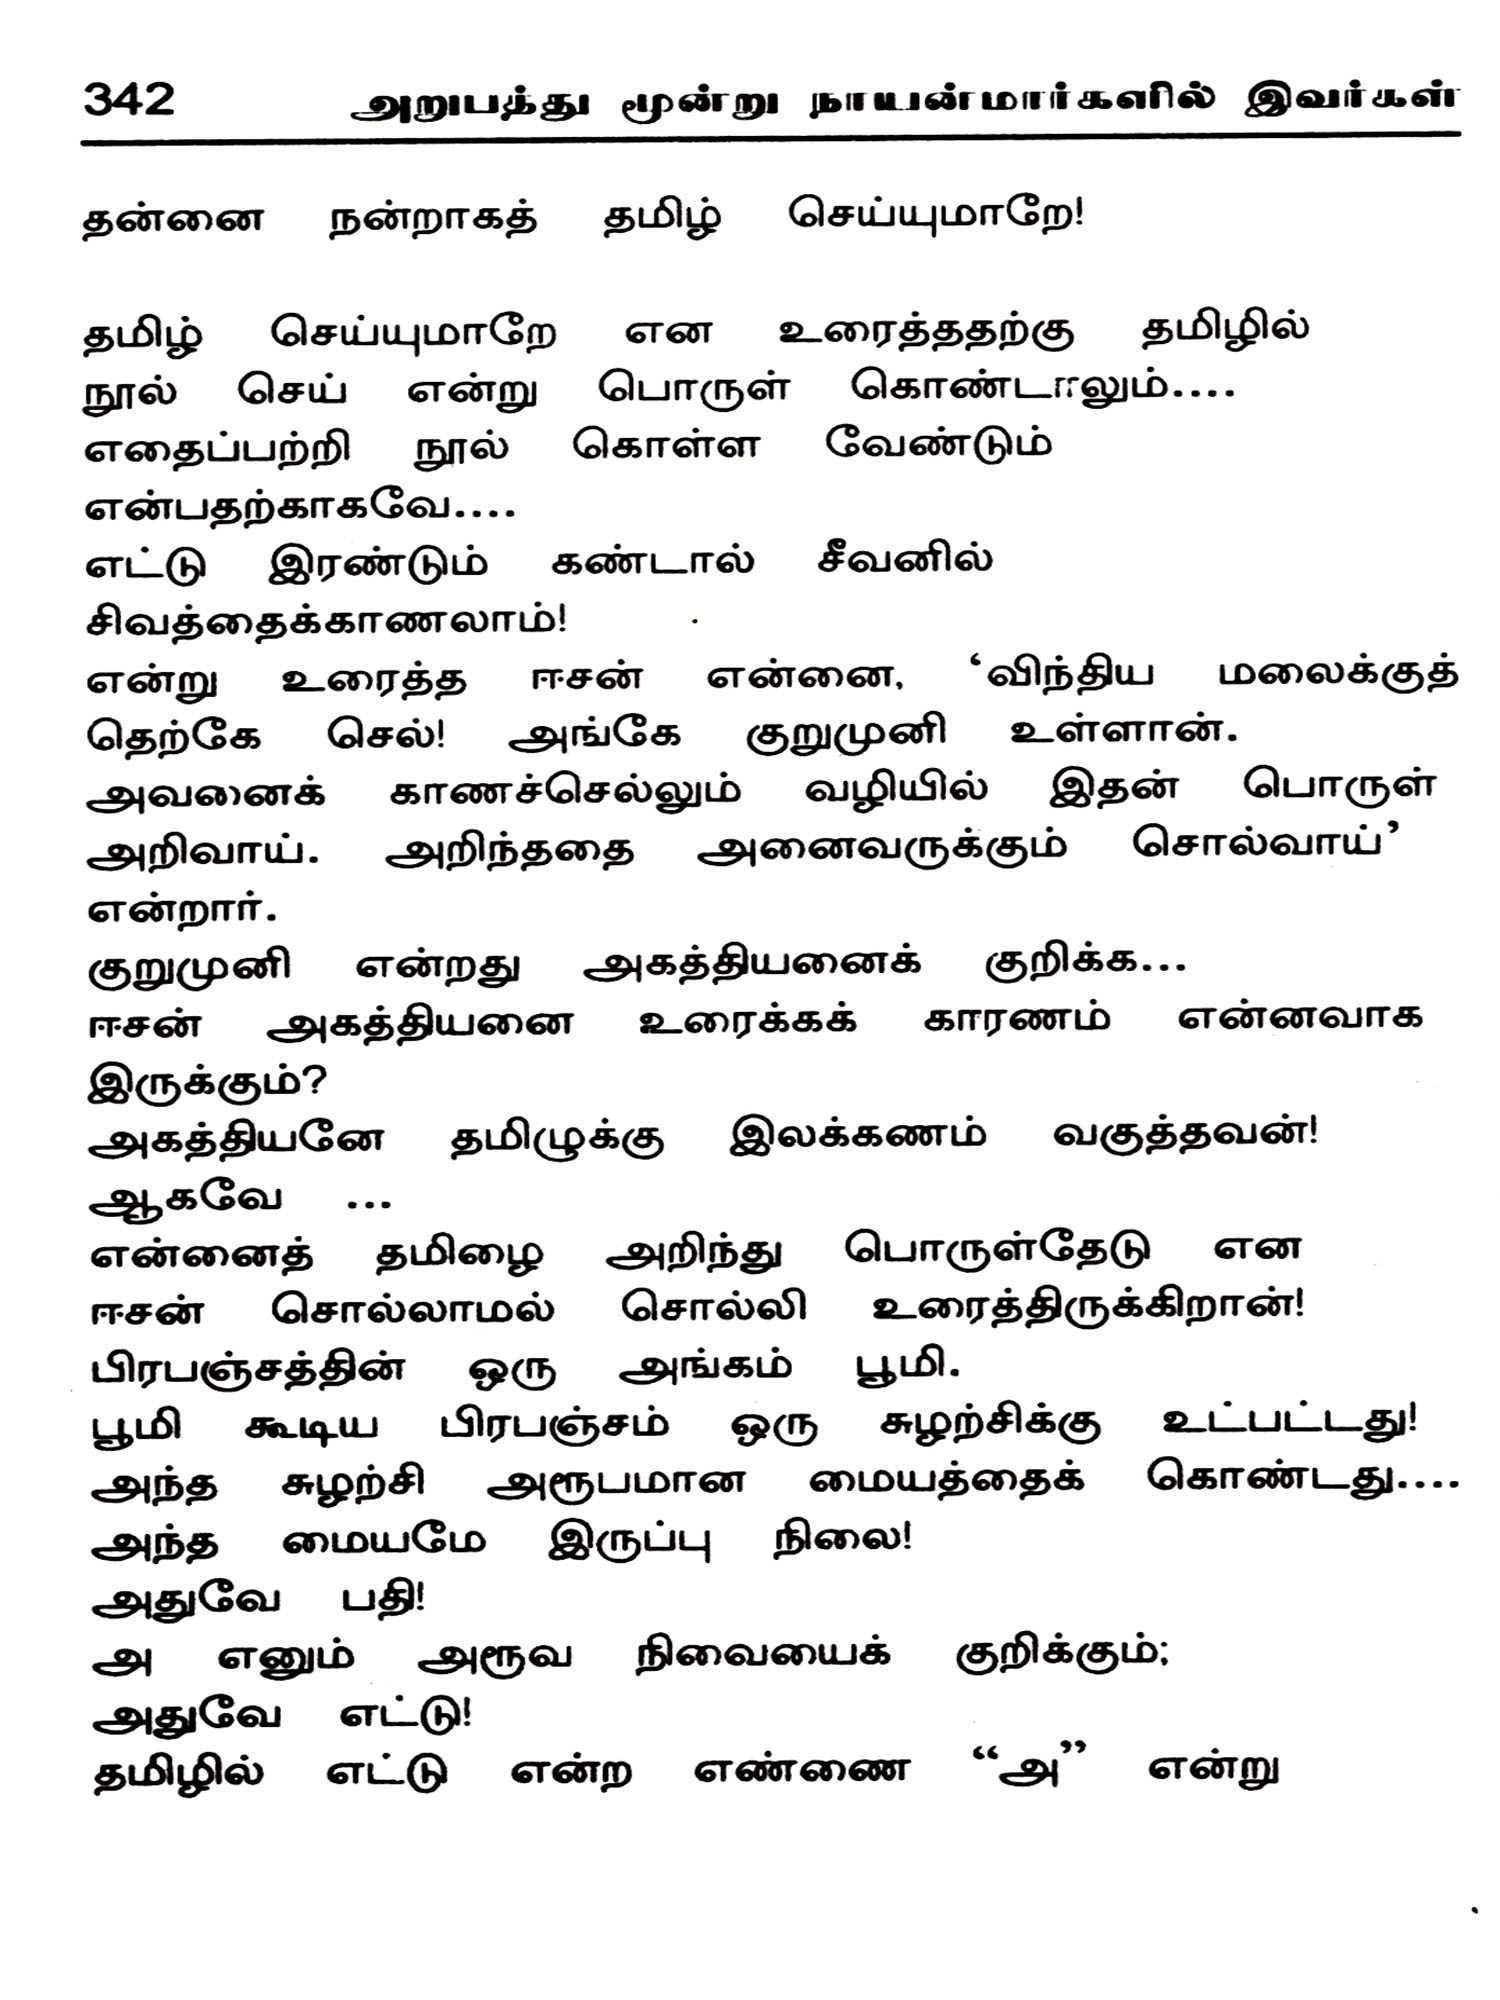 342 அறுபத்து மூன்று நாயன்மார்களில் இவர்கள்
தன்னை நன்றாகத் தமிழ் செய்யுமாறே!
தமிழ் செய்யுமாறே என உரைத்ததற்கு தமிழில்
நூல் செய் என்று பொருள் கொண்டாலும்....
எதைப்பற்றி நூல் கொள்ள வேண்டும்
என்பதற்காகவே....
எட்டு இரண்டும் கண்டால் சீவனில்
சிவத்தைக்காணலாம்!
என்று உரைத்த ஈசன் என்னை, ‘விந்திய மலைக்குத்
தெற்கே செல்! அங்கே குறுமுனி உள்ளான்.
அவனைக் காணச்செல்லும் வழியில் இதன் பொருள்
அறிவாய். அறிந்ததை அனைவருக்கும் சொல்வாய்’
என்றார்.
குறுமுனி என்றது அகத்தியனைக் குறிக்க...
ஈசன் அகத்தியனை உரைக்கக் காரணம் என்னவாக
இருக்கும்?
அகத்தியனே தமிழுக்கு இலக்கணம் வகுத்தவன்!
ஆகவே ...
என்னைத் தமிழை அறிந்து பொருள்தேடு என
ஈசன் சொல்லாமல் சொல்லி உரைத்திருக்கிறான்!
பிரபஞ்சத்தின் ஒரு அங்கம் பூமி.
பூமி கூடிய பிரபஞ்சம் ஒரு சுழற்சிக்கு உட்பட்டது!
அந்த சுழற்சி அரூபமான மையத்தைக் கொண்டது....
அந்த மையமே இருப்பு நிலை!
அதுவே பதி!
அ எனும் அரூவ நிவையைக் குறிக்கும்;
அதுவே எட்டு!
தமிழில் எட்டு என்ற எண்ணை “அ” என்று